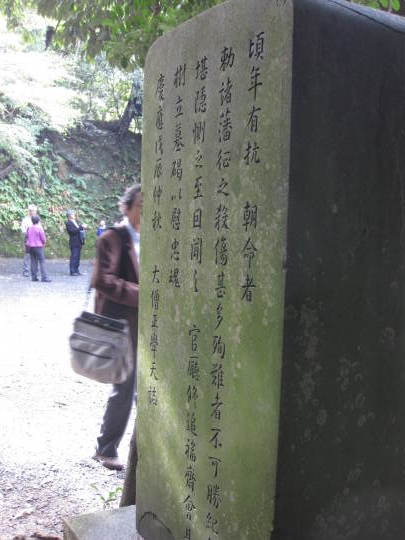 頃年有抗 朝命者
勅諸藩征之殺傷甚多殉難者不可勝紀
堪隠惻之至因聞之 官廳修追福齋會且
樹立墓碣以慰忠魂
慶應戊辰仲秋 大僧正學天誌